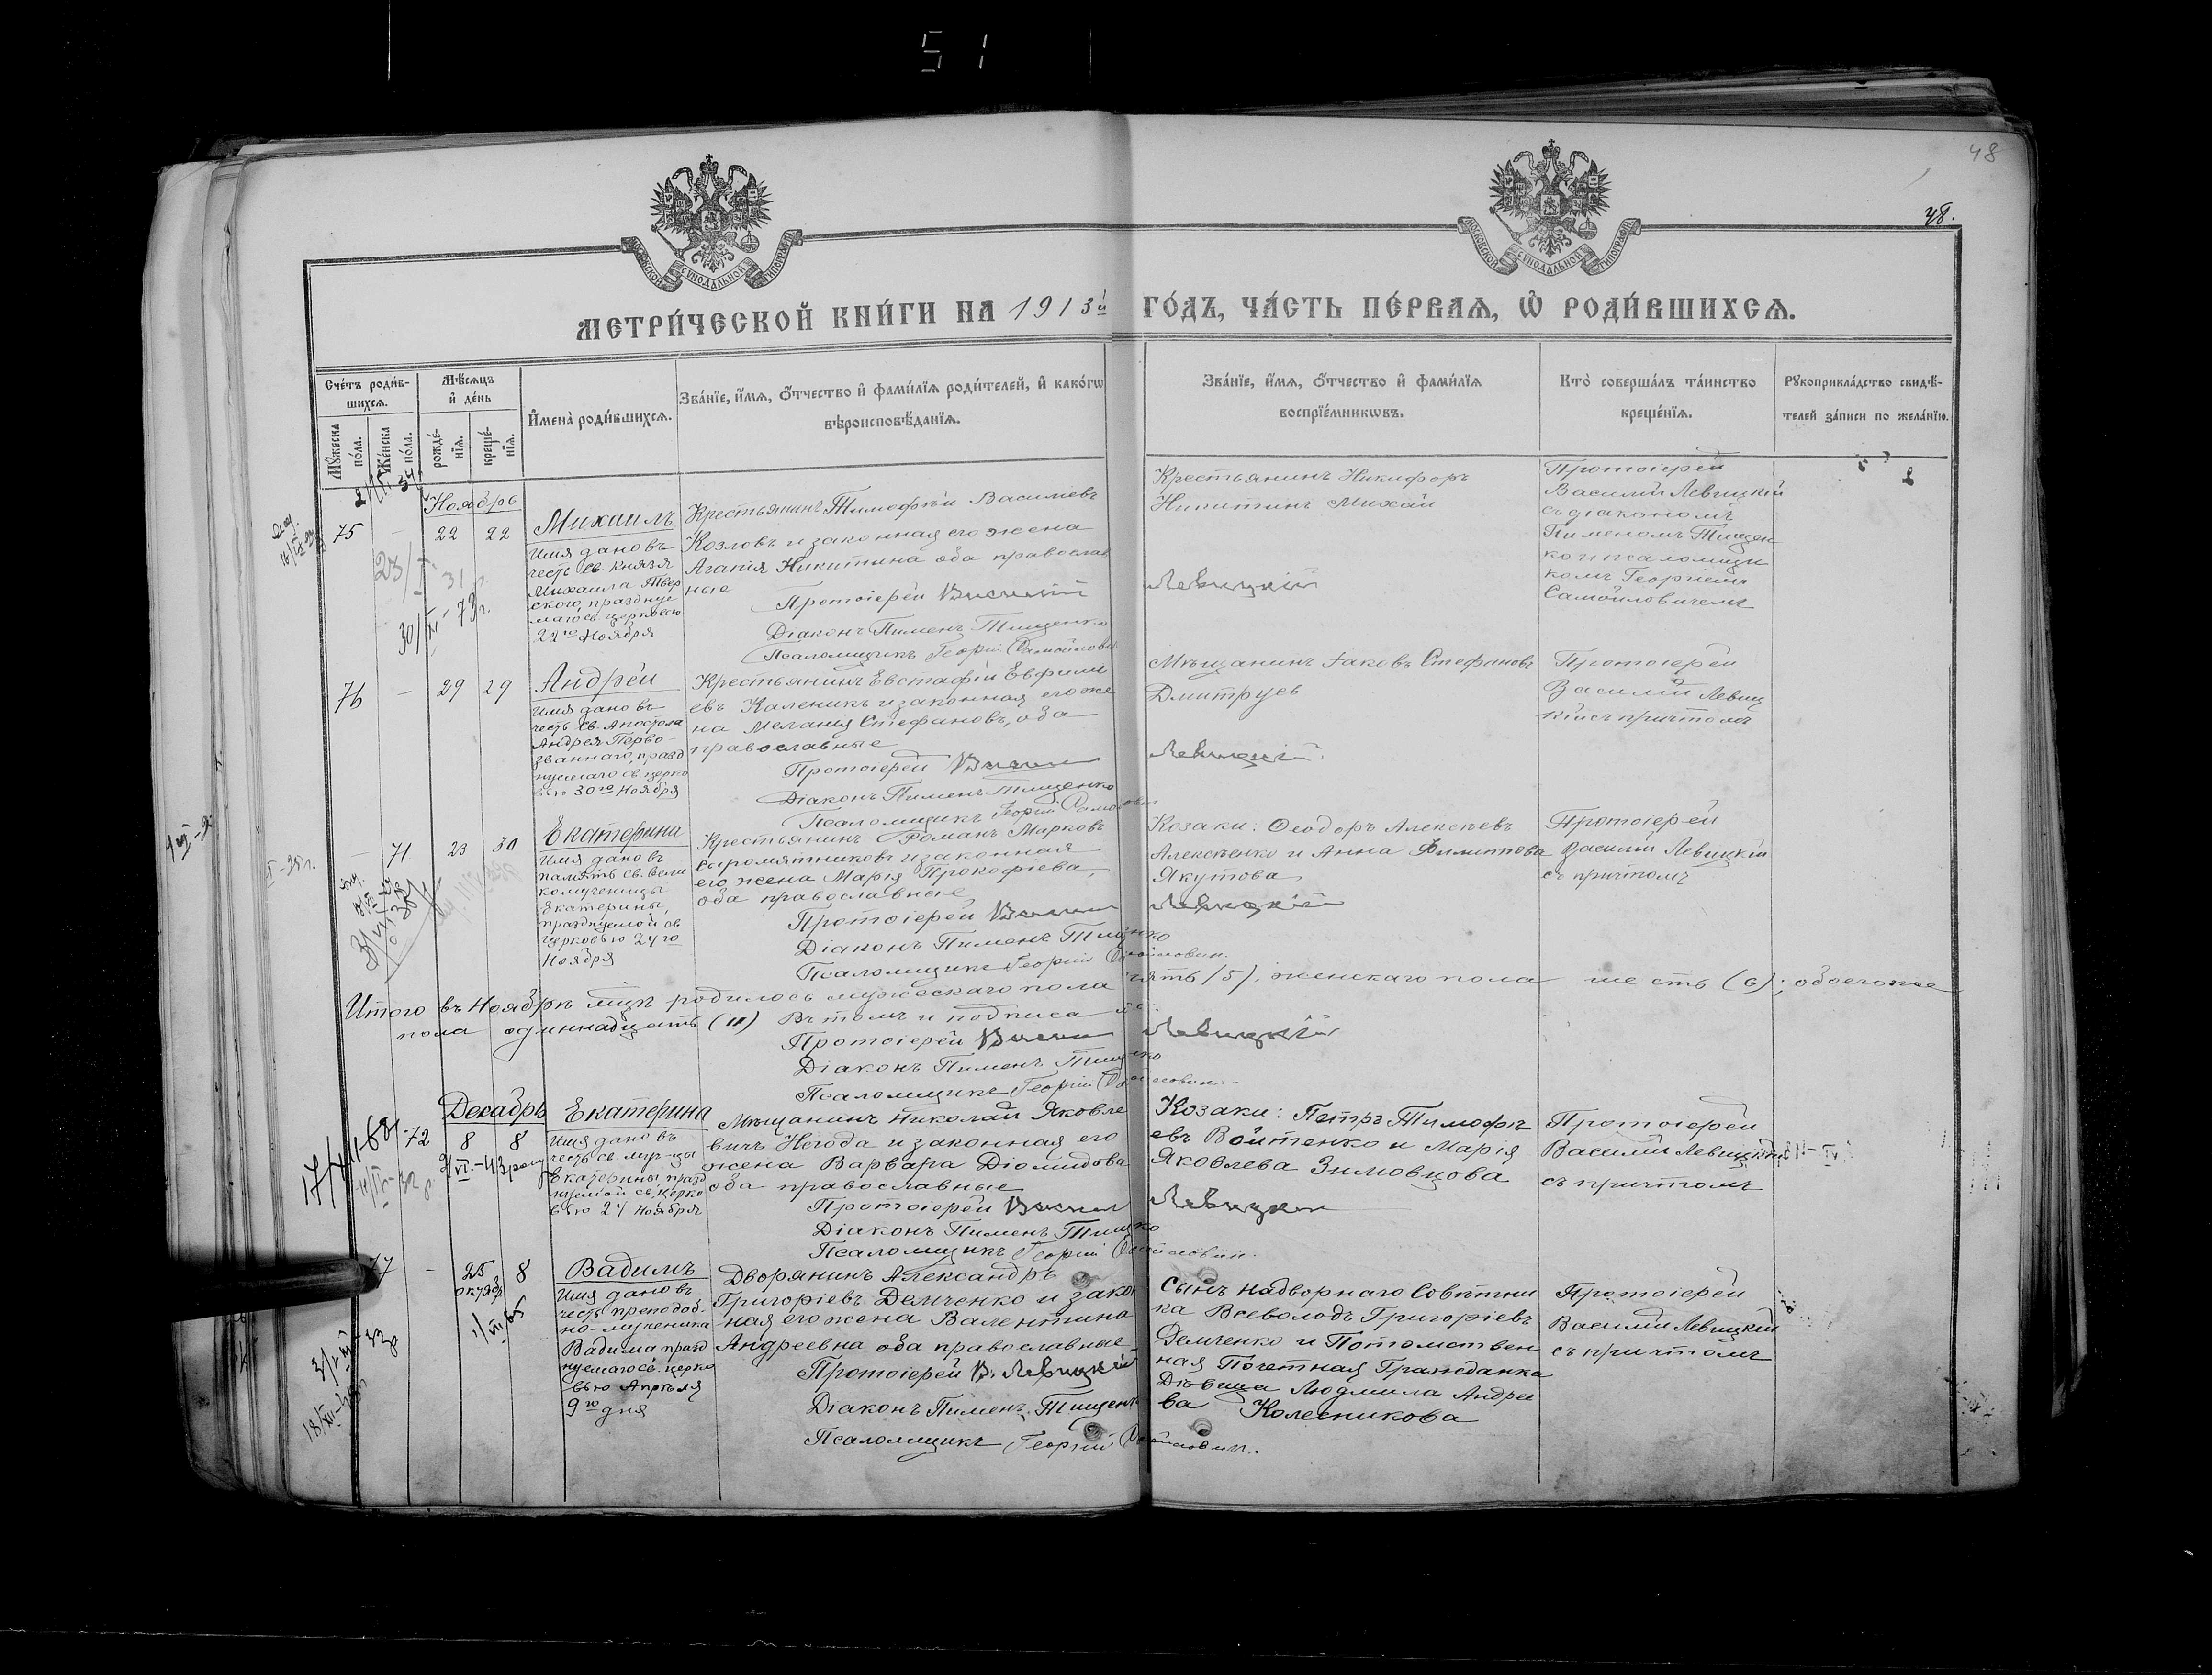 51
48
48.
МОСКОВСКОЙ СѴНОДАЛЬНОЙ ТИПОГРАФІИ
МОСКОВСКОЙ СѴНОДАЛЬНОЙ ТИПОГРАФІИ
МЕТРИ́ЧЕСКОЙ КНИ́ГИ НА 1913й ГО́ДЪ, ЧА́СТЬ ПЕ́РВАѦ, Ѡ РОДИ́ВШИХСѦ.
Сче́тъ роди́в-
шихсѧ.
Мꙋжеска по́ла.
Же́нска по́ла.
Мѣ́сѧцъ
и де́нь
рожде́-
нїѧ.
креще́-
нїѧ.
Имена̀ роди́вшихсѧ.
Зва́нїе, и́мѧ, о́тчество и фами́лїѧ роди́телей, и како́гѡ
вѣроисповѣ́данїѧ.
Зва́нїе, и́мѧ, о́тчество и фами́лїѧ
воспрїе́мникѡвъ.
Кто̀ соверша́лъ та́инство
креще́нїѧ.
Рꙋкоприкла́дство свидѣ́-
телей за́писи по жела́нїю.
Ноябрь
75 - 22 22
Михаилъ
Имя дано въ
честь св. Князя
Михаила Твер
ского, праздnуе
маго св. церковью
22го Ноября
Крестьянинъ Тимофѣй Васильевъ
Козловъ и законная его жена
Агапія Никитина оба православ
ные
Протоіерей Василій Левицкій
Діаконъ Пименъ Тищенко
Псаломщикъ Георгій Самойлович
Крестьянинъ Никифоръ
Никитинъ Михай
Протоіерей
Василій Левицкій
съ діакономъ
Пименомъ Тищен
ко и псаломщи
комъ Георгіемъ
Самойловичемъ
30/XI-73г.
76 - 29 29
Андрей
Имя дано въ
честь св. Апостола
Андрея Перво-
званнаго, празд
нуемаго св. церко
вью 30го Ноября
Крестьянинъ Евстафій Евфимі
евъ Каленикъ и законная его же
на Меланія Стефановъ, оба
православные
Протоіерей Василій Левицкій
Діаконъ Пименъ Тищенко
Псаломщикъ Георгій Самойлович
Мѣщанинъ Іаковъ Стефановъ
Дмитруев
Протоіерей
Василій Левиц
кій съ причтомъ
- 71 23 30
Екатерина
Имя дано въ
память св. вели
комученицы
Екатерины,
празднуемой св
церковью 24го
Ноября
Крестьянинъ Романъ Марковъ
Сыромятниковъ и законная
его жена Марія Прокофіева,
оба православные
Протоіерей Василій Левицкій
Діаконъ Пименъ Тищенко
Псаломщикъ Георгій Самойлович.
Козаки: Ѳеодоръ Алексѣевъ
Алексѣенко и Анна Филиппова
Якутова
Протоіерей
Василій Левицкій
съ причтомъ
Итого въ Ноябрѣ мцѣ родилось мужескаго пола пять (5), женскаго пола шесть (6); обоего
пола одиннадцать (11) Въ томъ и подписа
Протоіерей Василій Левицкій
Діаконъ Пименъ Тищенко
Псаломщикъ Георгій Самойлович.
Декабрь
72 8 8
Екатерина
Имя дано въ
честь св. муч-цы
Екатерины, празд
нуемой св. церко
вью 24 Ноября
Мѣщанинъ Николай Яковле
вичъ Негода и законная его
жена Варвара Діомидова
оба православные
Протоіерей Василій Левицкій
Діаконъ Пименъ Тищенко
Псаломщикъ Георгій Самойлович.
Козаки: Петръ Тимофѣ
евъ Войтенко и Марія
Яковлева Зимовцова
Протоіерей
Василій Левицкій
съ причтомъ
77 - 25 октябр 8
Вадимъ
Имя дано въ
честь преподоб-
но-мученика
Вадима празд
нуемаго св. церко
вью Апрѣля
9го дня
Дворянинъ Александръ
Григоріевъ Демченко и закон
ная его жена Валентина
Андреевна оба православные
Протоіерей В. Левицкій
Діаконъ Пименъ Тищенко
Псаломщикъ Георгій Самойлович.
Сынъ надворнаго Совѣтни
ка Всеволодъ Григоріевъ
Демченко и Потомствен
ная Почетная Гражданка
Дѣвица Людмила Андрее
ва Колесникова
Протоіерей
Василій Левицкій
съ причтомъ